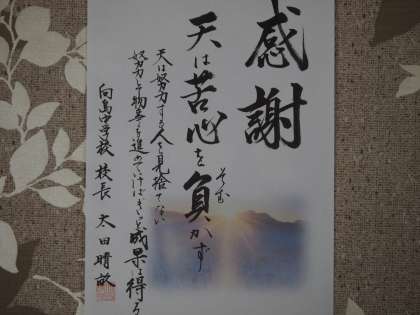 感謝
天は苦心を負かず
そむ
天は努力する人を見捨てない
努力して物事を進めていけばきっと成果を得る
向島中学校 校長 太田晴敏